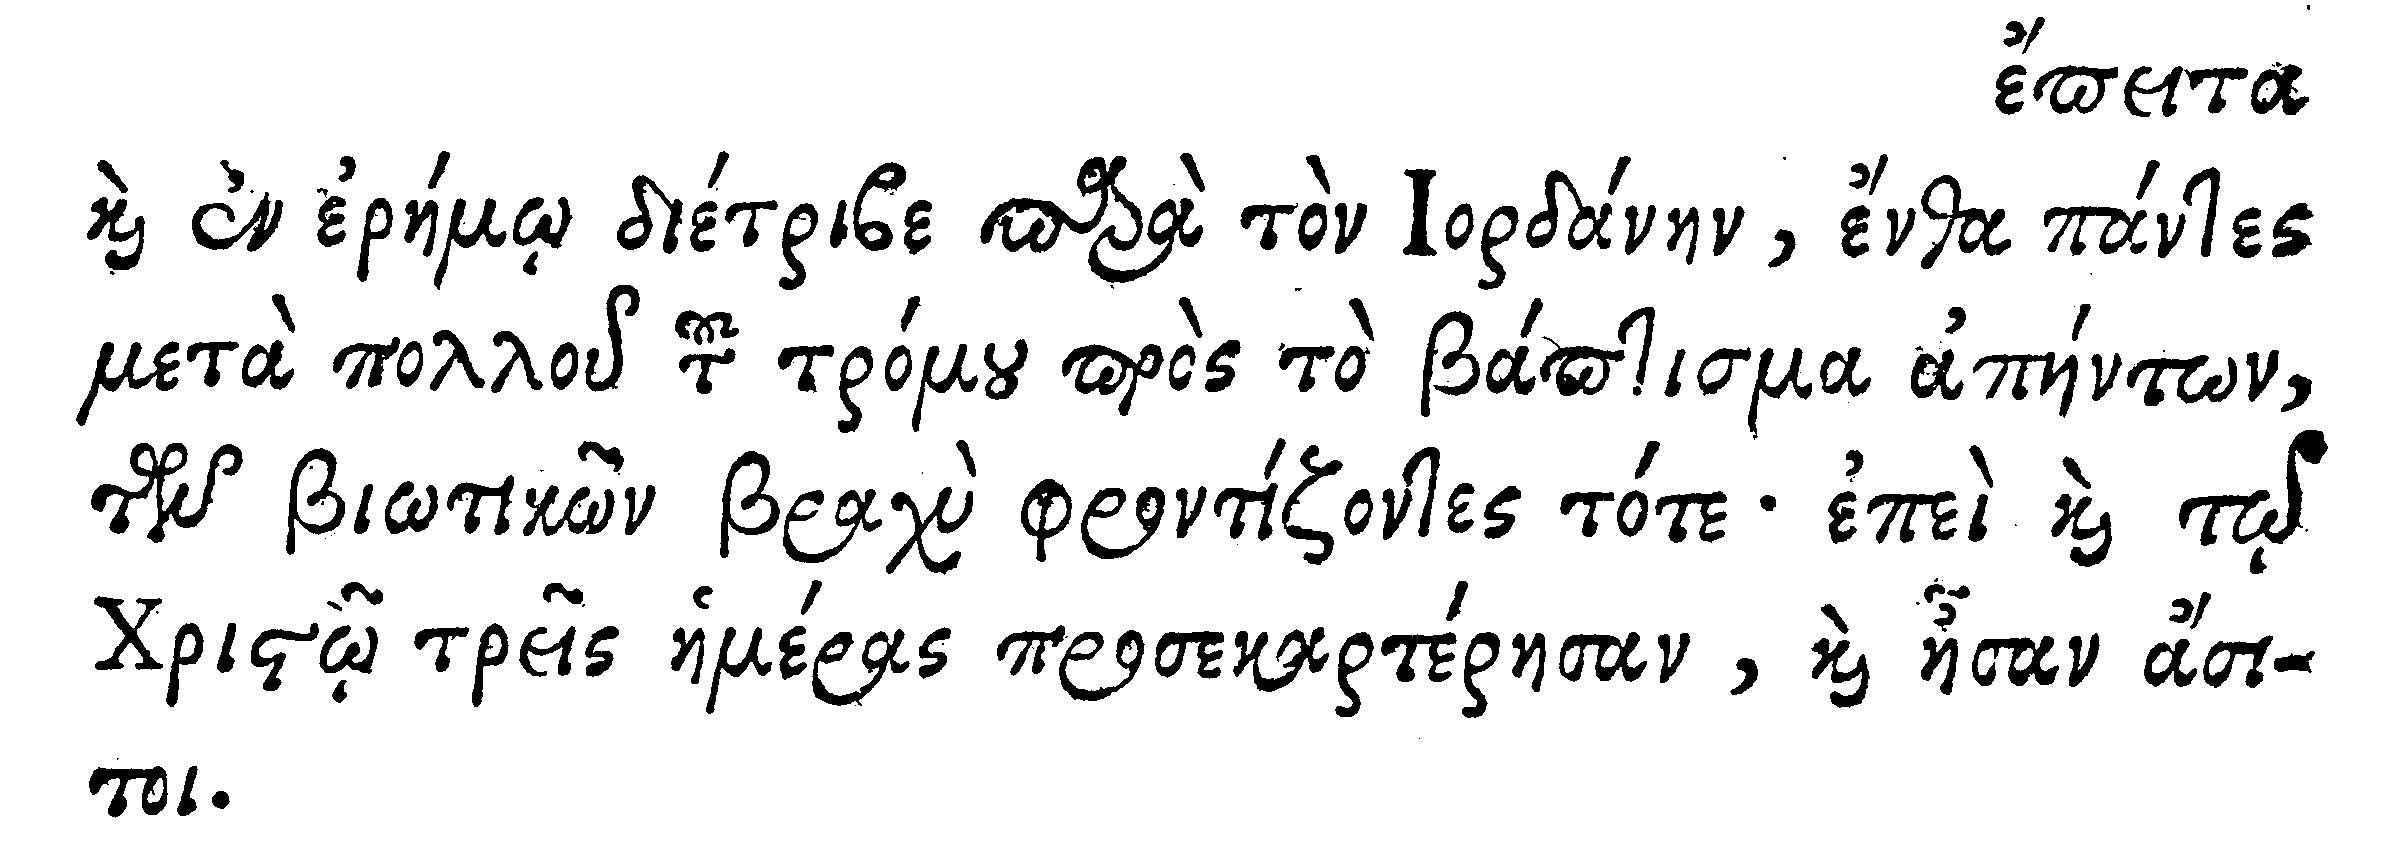 ἔπειτα
καὶ ἐν ἐρήμῳ διέτριβε παρὰ τὸν Ιορδάνην, ἔνθα πάντες
μετὰ πολλοῦ τοῦ τρόμου πρὸς τὸ βάπτισμα ἀπήντων,
τῶν βιωτικῶν βραχὺ φροντίζοντες τότε· ἐπεὶ καὶ τῷ
Χριστῷ τρεῖς ἡμέρας προσεκαρτέρησαν, καὶ ἦσαν ἄσι-
τοι.